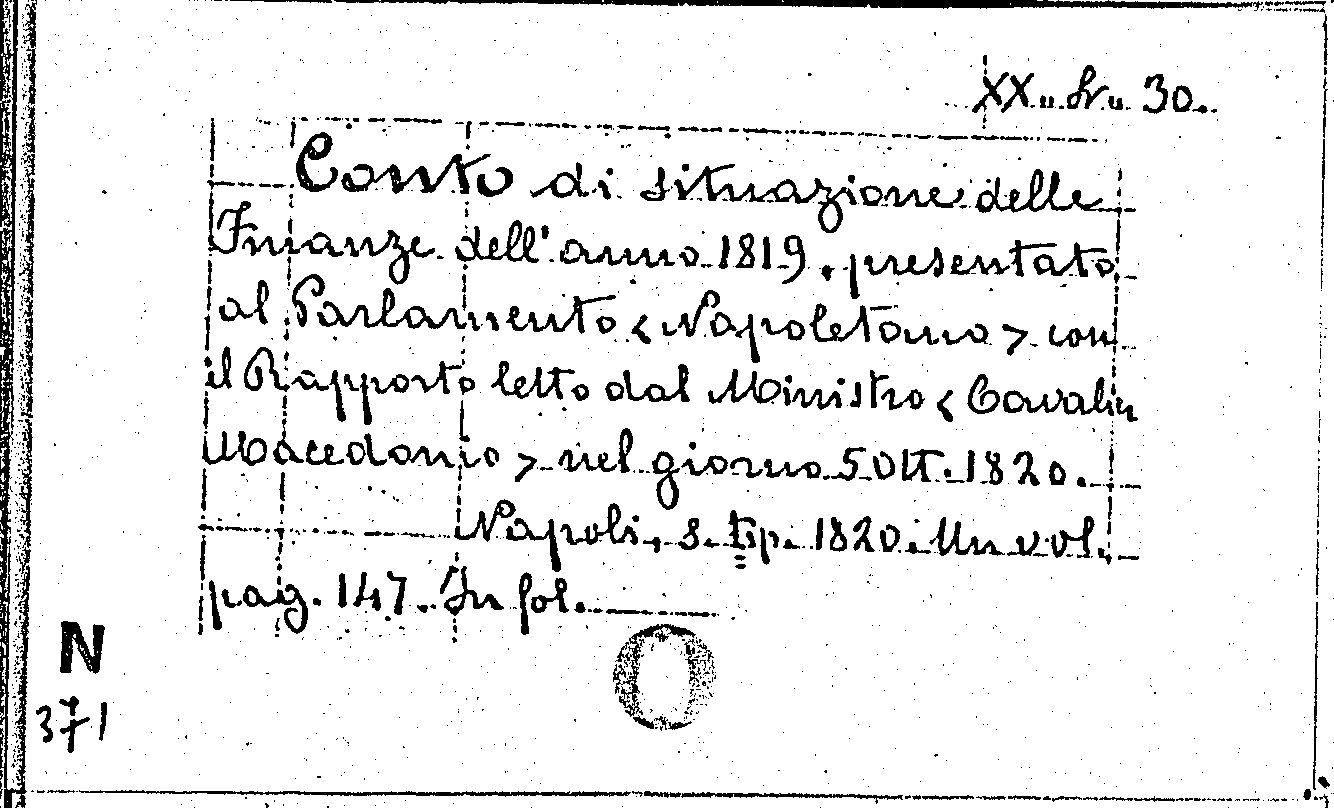 XX. Sr. 30.
Conto di situazione delle
Finanze dell'anno 1819, presentato
al Parlamento < Napoletano > con
il Rapporto letto dal Ministro < Cavalier
Macedonio > nel giorno 5 Ott. 1820.
Napoli, s. tip. 1820. Un vol.
pag. 147. In fol.
N
371